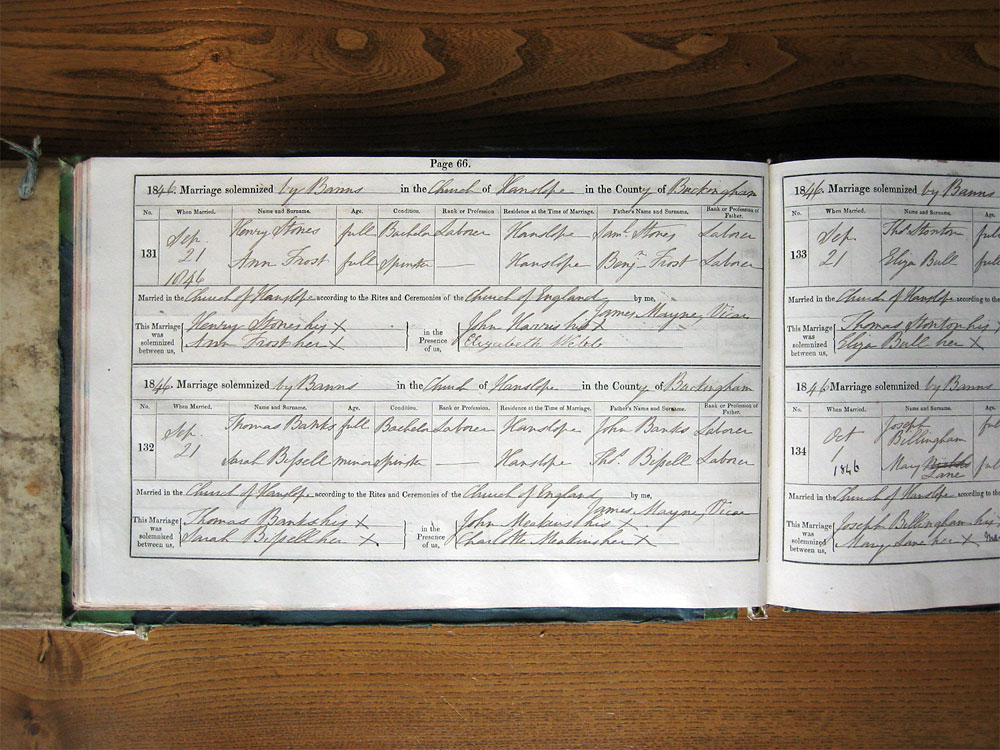 Page 66.
1846. Marriage solemnized by Banns in the Church of Hanslope in the County of Buckingham
No. When Married. Name and Surname. Age. Condition. Rank or Profession Residence at the Time of Marriage. Father's Name and Surname. Rank or Profession of Father.
131 Sep. 21 1846 Henry Stones full Bachelor Laborer Hanslope Saml. Stones Laborer
Ann Frost full Spinster — Hanslope Benjn. Frost Laborer
Married in the Church of Hanslope according to the Rites and Ceremonies of the Church of England by me,
James Mayne, Vicar
This Marriage was solemnized between us, Henry Stones his X in the Presence of us, John Harris his X
Ann Frost her X Elizabeth Webb
1846. Marriage solemnized by Banns in the Church of Hanslope in the County of Buckingham
No. When Married. Name and Surname. Age. Condition. Rank or Profession. Residence at the Time of Marriage. Father's Name and Surname. Rank or Profession of Father.
132 Sep. 21 Thomas Banks full Bachelor Laborer Hanslope John Banks Laborer
Sarah Bissell minor Spinster — Hanslope Thos. Bissell Laborer
Married in the Church of Hanslope according to the Rites and Ceremonies of the Church of England by me,
James Mayne, Vicar
This Marriage was solemnized between us, Thomas Banks his X in the Presence of us, John Meakins his X
Sarah Bissell her X Charlotte Meakins her X
1846 Marriage solemnized by Banns
No. When Married. Name and Surname. Age.
133 Sep. 21 Thos. Stonton full
Eliza Bull full
Married in the Church of Hanslope according to the
This Marriage was solemnized between us, Thomas Stonton his
Eliza Bull her X
1846 Marriage solemnized by Banns
No. When Married. Name and Surname. Age.
134 Oct 1 1846 Joseph Billingham ful
Mary Lane ful
Married in the Church of Hanslope according to the
This Marriage was solemnized between us, Joseph Billingham his
Mary Lane her X